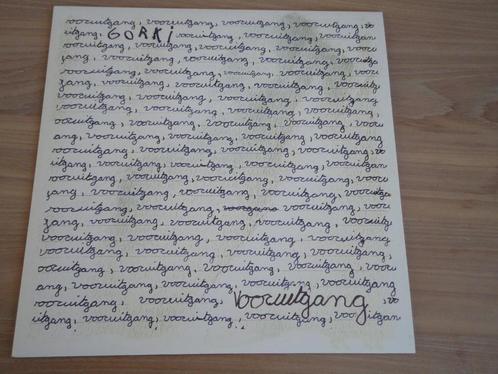 vooruitgang, vooruitgang, vooruitgang, vooruitgang, vo
uitgang, GORKI vooruitgang, vooruitgang, vooru
vooruitgang, vooruitgang, vooruitgang, vooruitgang, vooru
gang, vooruitgang, vooruitgang, vooruitgang, vooruitga
vooruitgang, vooruitgang, vooruitgang, vooruitgang, vooru
gang, vooruitgang, vooruitgang, vooruitgang, vooruitgang
vooruitgang, vooruitgang, vooruitgang, vooruitgang,
vooruitgang, vooruitgang, vooruitgang, vooruitgang,
vooruitgang, vooruitgang, vooruitgang, vooruitgang, vooru
ang, vooruitgang, vooruitgang, vooruitgang, vooruitgang
vooruitgang, vooruitgang, vooruitgang, vooruitgang, vo
uitgang, vooruitgang, vooruitgang, vooruitgang, vooruitg
vooruitgang, vooruitgang, vooruitgang, vooruitgang, vooru
gang, vooruitgang, vooruitgang, vooruitgang, vooruitga
vooruitgang, vooruitgang, vooruitgang, vooruitgang,
vooruitgang, vooruitgang, vooruitgang, vooruitgang,
vooruitgang, vooruitgang, vooruitgang, vooruitgang
vooruitgang, vooruitgang, vooruitgang, vooruitgang,
vooruitgang, vooruitgang, vooruitgang, vooruitgang, vooru
ang, vooruitgang, vooruitgang, vooruitgang, vooruitgang
vooruitgang, vooruitgang, Vooruitgang, vo
uitgang, vooruitgang, vooruitgang, vooruitgang, vooruitgan